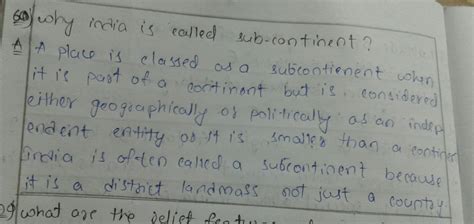 60) why india is called sub-continent?
A A place is classed as a subcontienent when
it is part of a continent but is considered
either geographically or politically as an indep
endent entity or it is smaller than a continent
india is often called a subcontinent because
it is a district landmass not just a country
29) what are the relief